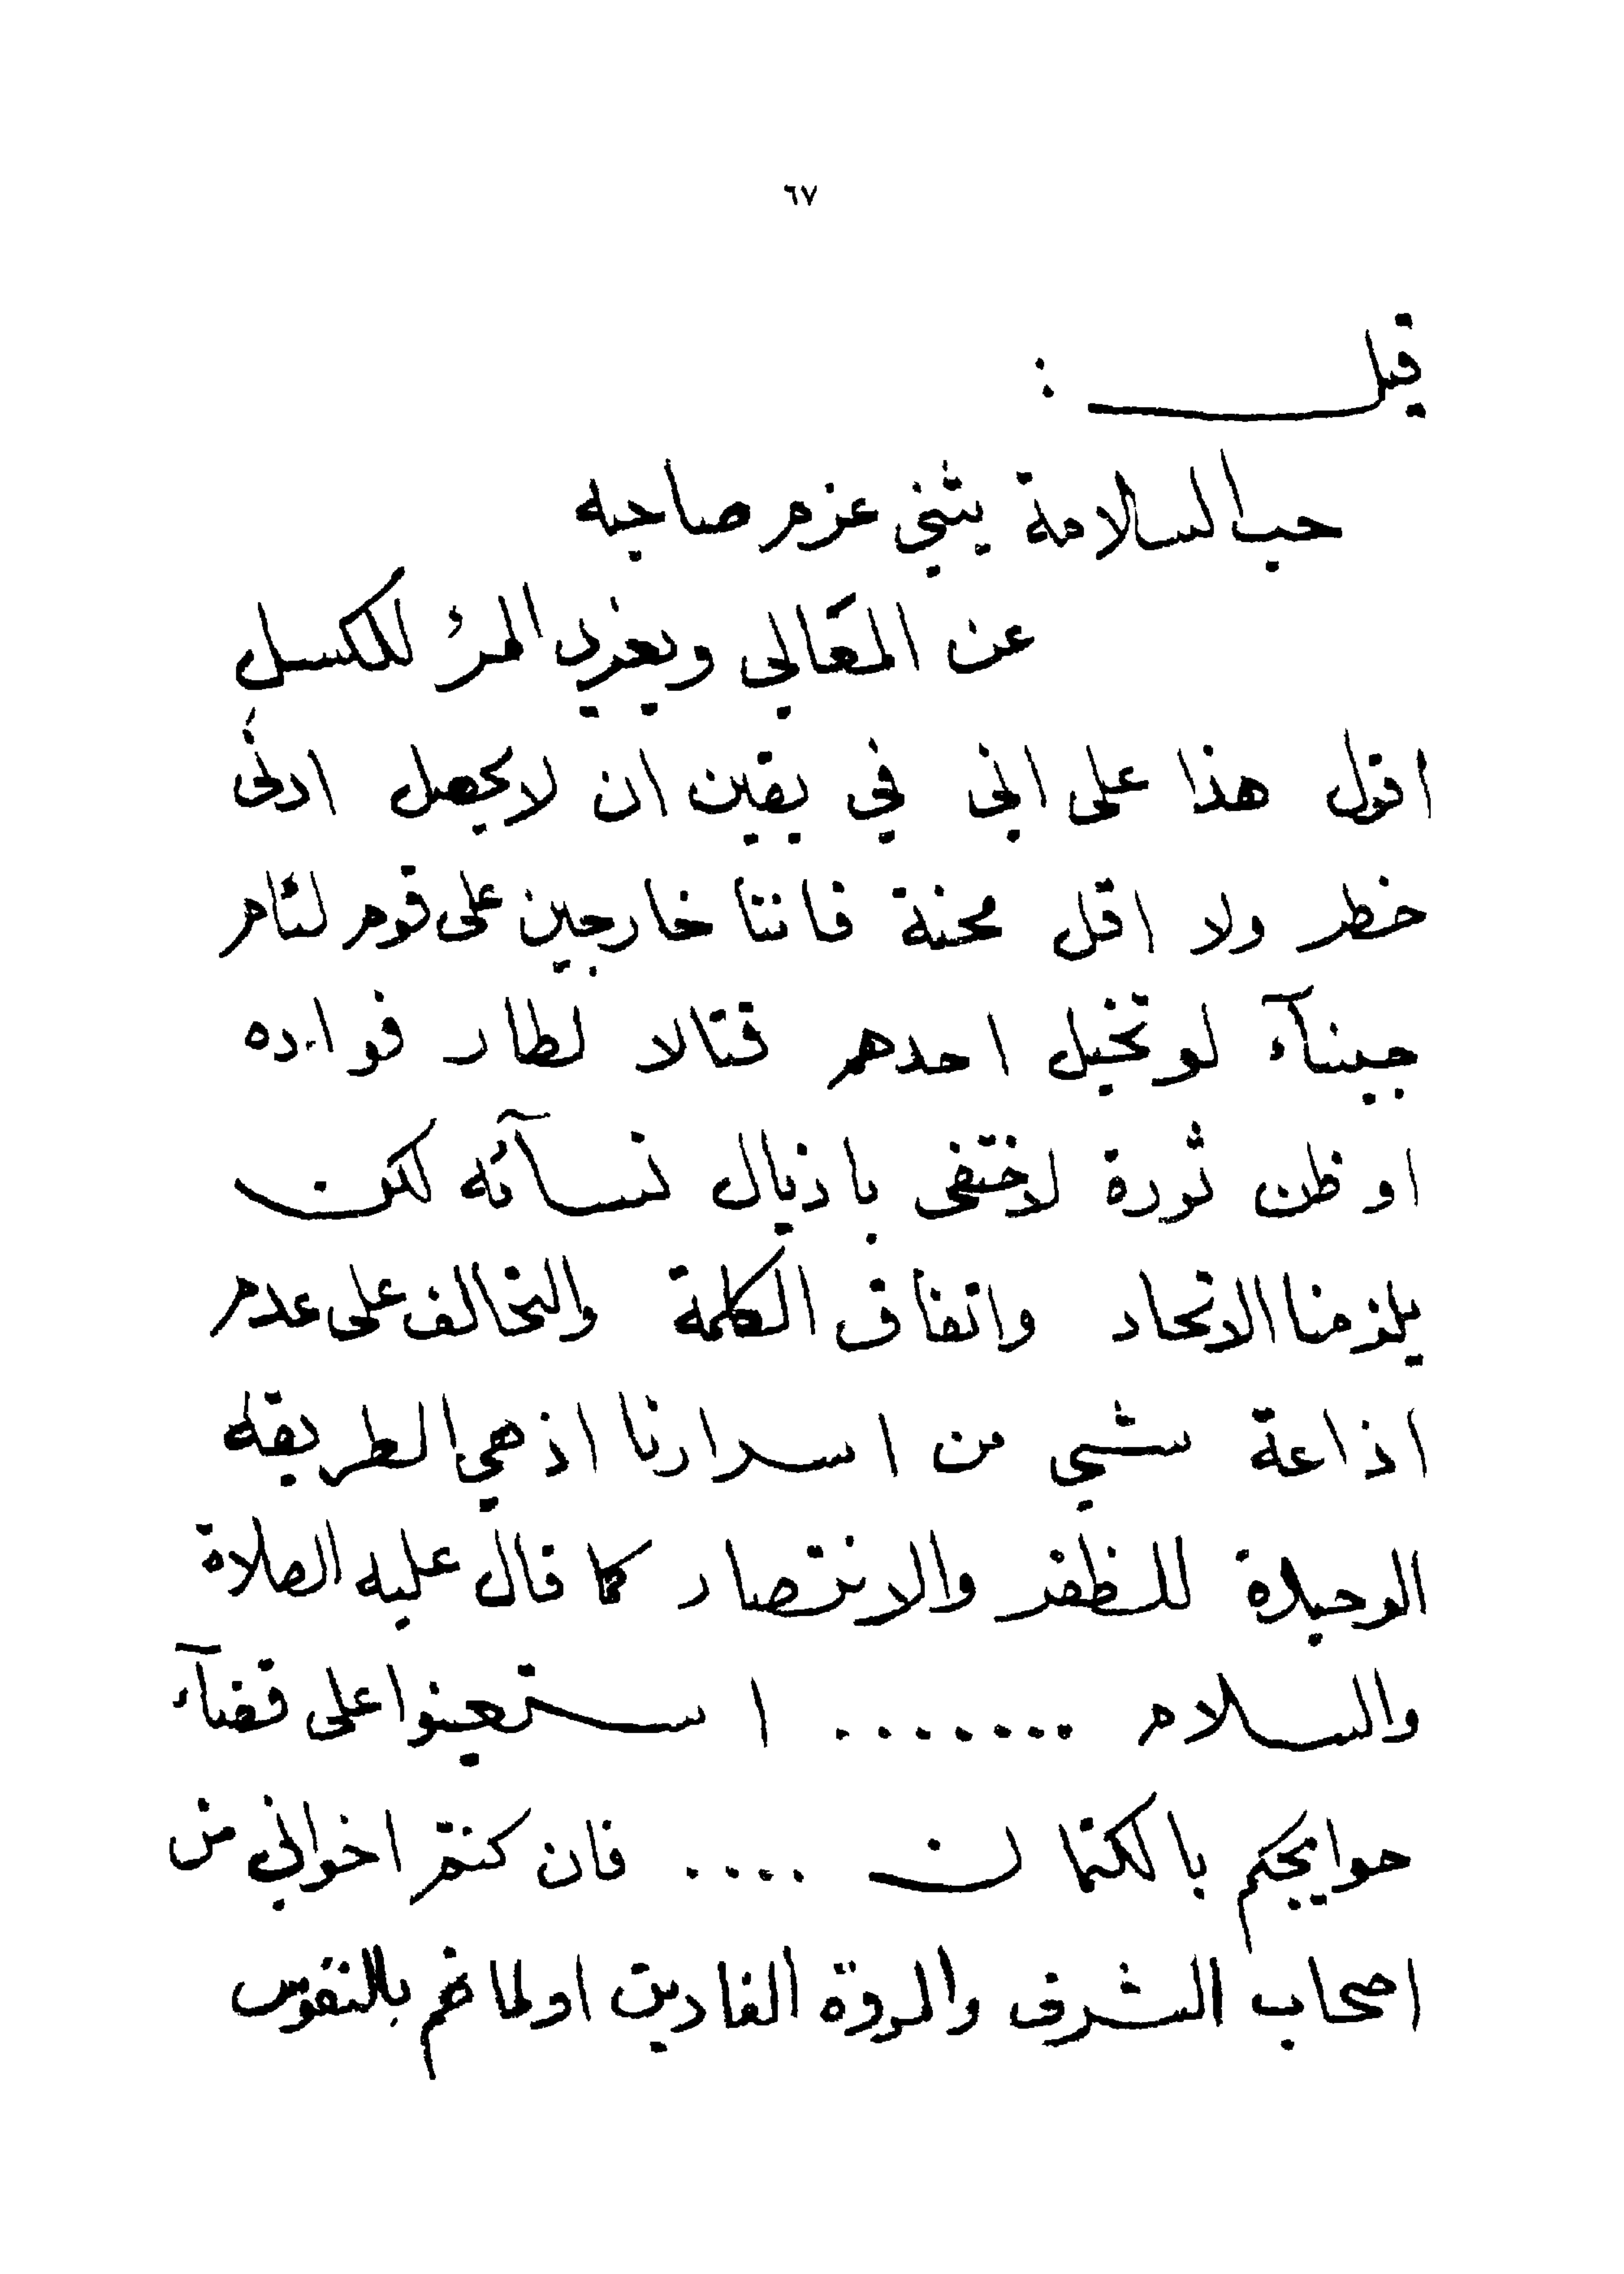 ٦٧
قيل :
حب السلامة يثني عزم صاحبه
عن المعَالي ويغري المرء للكسل
اقول هذا على اني في يقين ان لا يحصل ادنى
خطر ولا اقل محنة فاننا خارجين على قوم لئام
جبنآء لو تخيل احدهم قتالا لطار فواده
او ظن ثورة لاختفى باذيال نسآئه لكن
يلزمنا الاتحاد واتفاق الكلمة والتحالف على عدم
اذاعة شي من اسرارنا اذ هي الطريقة
الوحيدة للظفر والانتصار كما قال عليه الصلاة
والسلام ........ استعينوا على قضآء
حوايجكم بالكتمان .... فان كنتم اخواني من
اصحاب الشرف والمروة الفادين اوطانهم بالنفوس